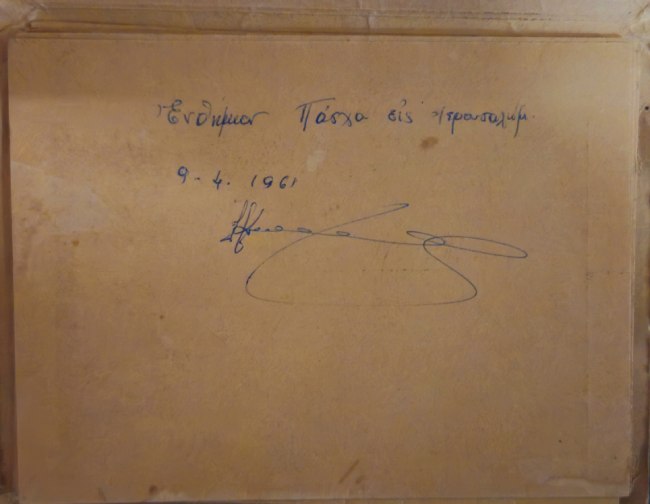 Ἐνθύμιον Πάσχα εἰς Ἱερουσαλήμ.
9. 4. 1961